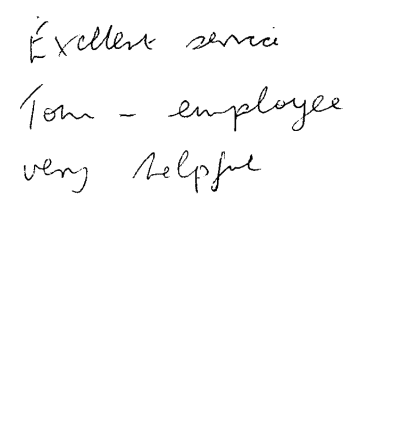 Excellent service
Tom - employee
very helpful